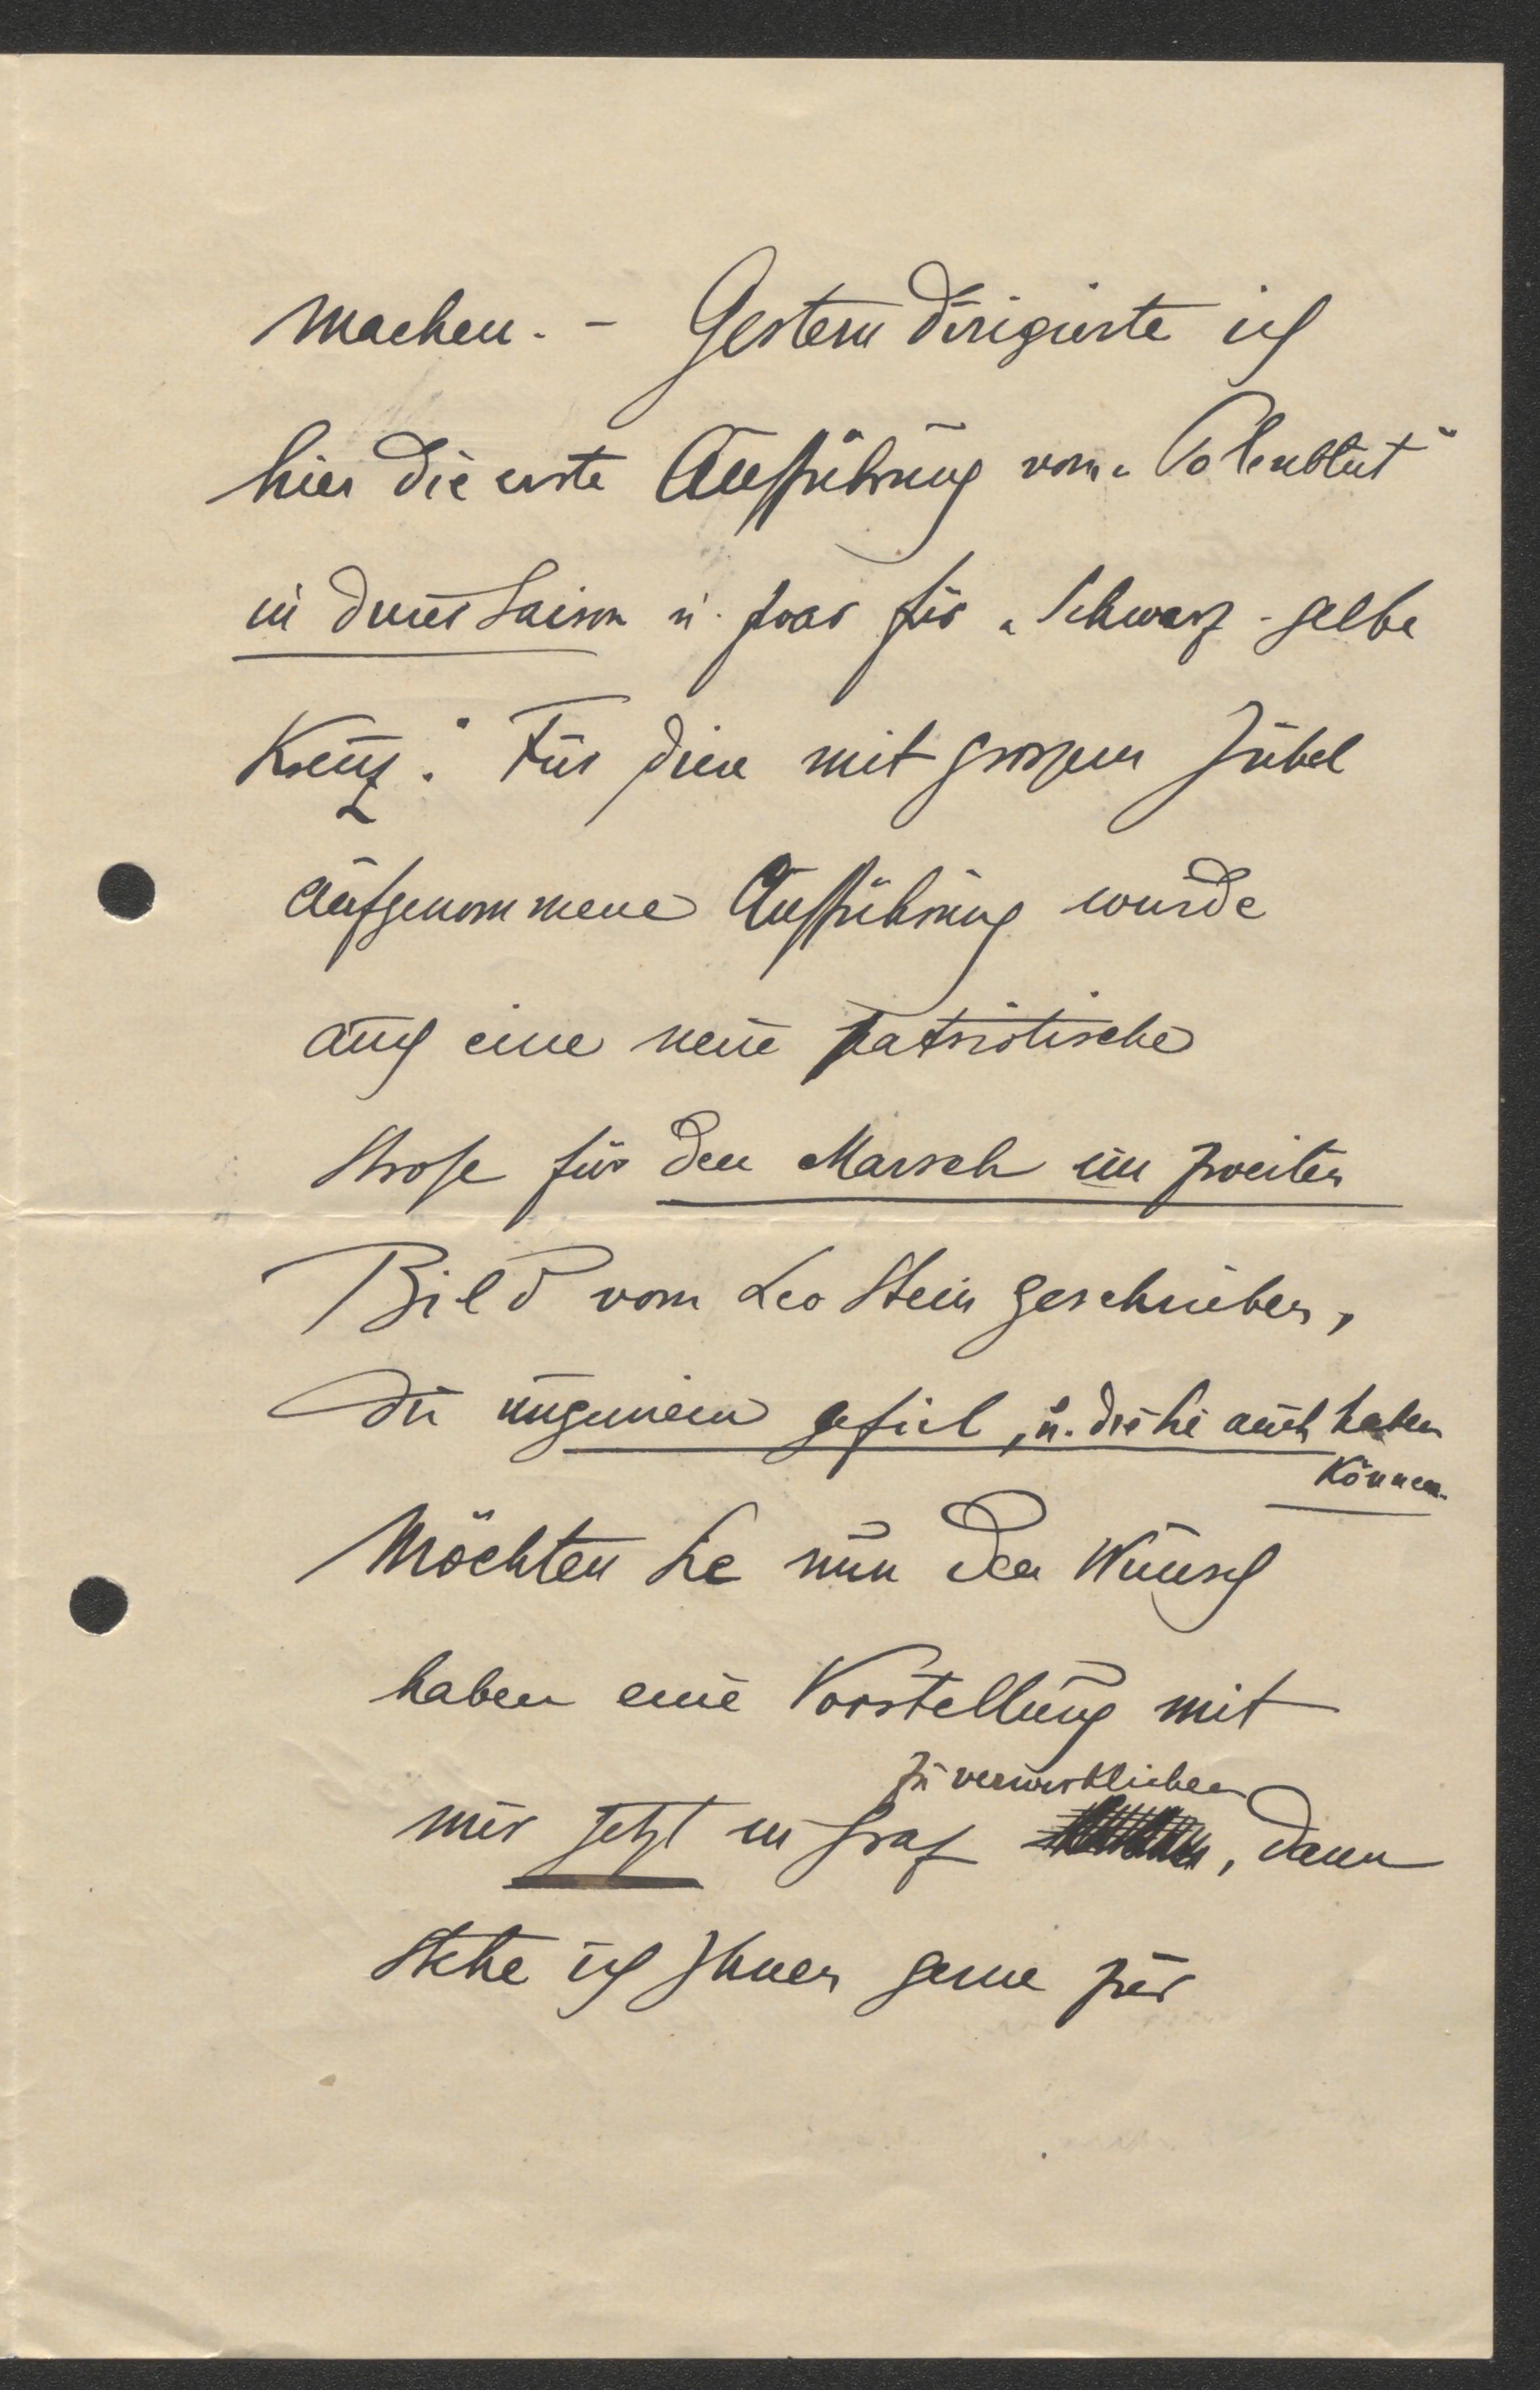 machen. – Gestern dirigierte ich
hier die erste Aufführung vom „Polenblut"
in dieser Saison u. zwar für „Schwarz-gelbe
Kreuz." Für diese mit grossem Jubel
aufgenommene Aufführung wurde
auch eine neue patriotische
Strofe für den Marsch im zweiten
Bild vom Leo Stein geschrieben,
die ungemein gefiel, u. die Sie auch haben
können.
Möchten Sie nun den Wunsch
haben eine Vorstellung mit
zu verwirklichen
mir jetzt in Graz , dann
stehe ich Ihnen gerne zur